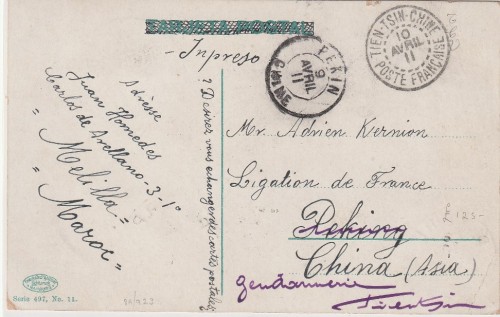 -Inpreso-
? Desirez vous echanger des cartes postales
Adresse
Juan Homedes
Carlos de Arellano-3-1º
= Melilla =
= Maroc =
PEKIN
9
AVRIL
11
CHINE
TIEN-TSIN-CHINE
10
AVRIL
11
POSTE FRANÇAISE
Mr. Adrien Kernion
Ligation de France
Peking
China (Asia)
Gendarmerie
Tientsin
125-
Serie 497, No. 11.